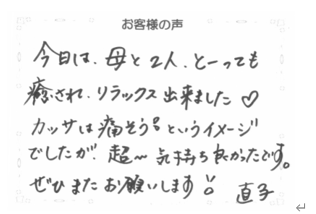 お客様の声
今日は、母と2人、とーっても
癒され、リラックス出来ました♡
カッサは痛そう！というイメージ
でしたが、超〜気持ち良かったです。
ぜひまたお願いします！
直子